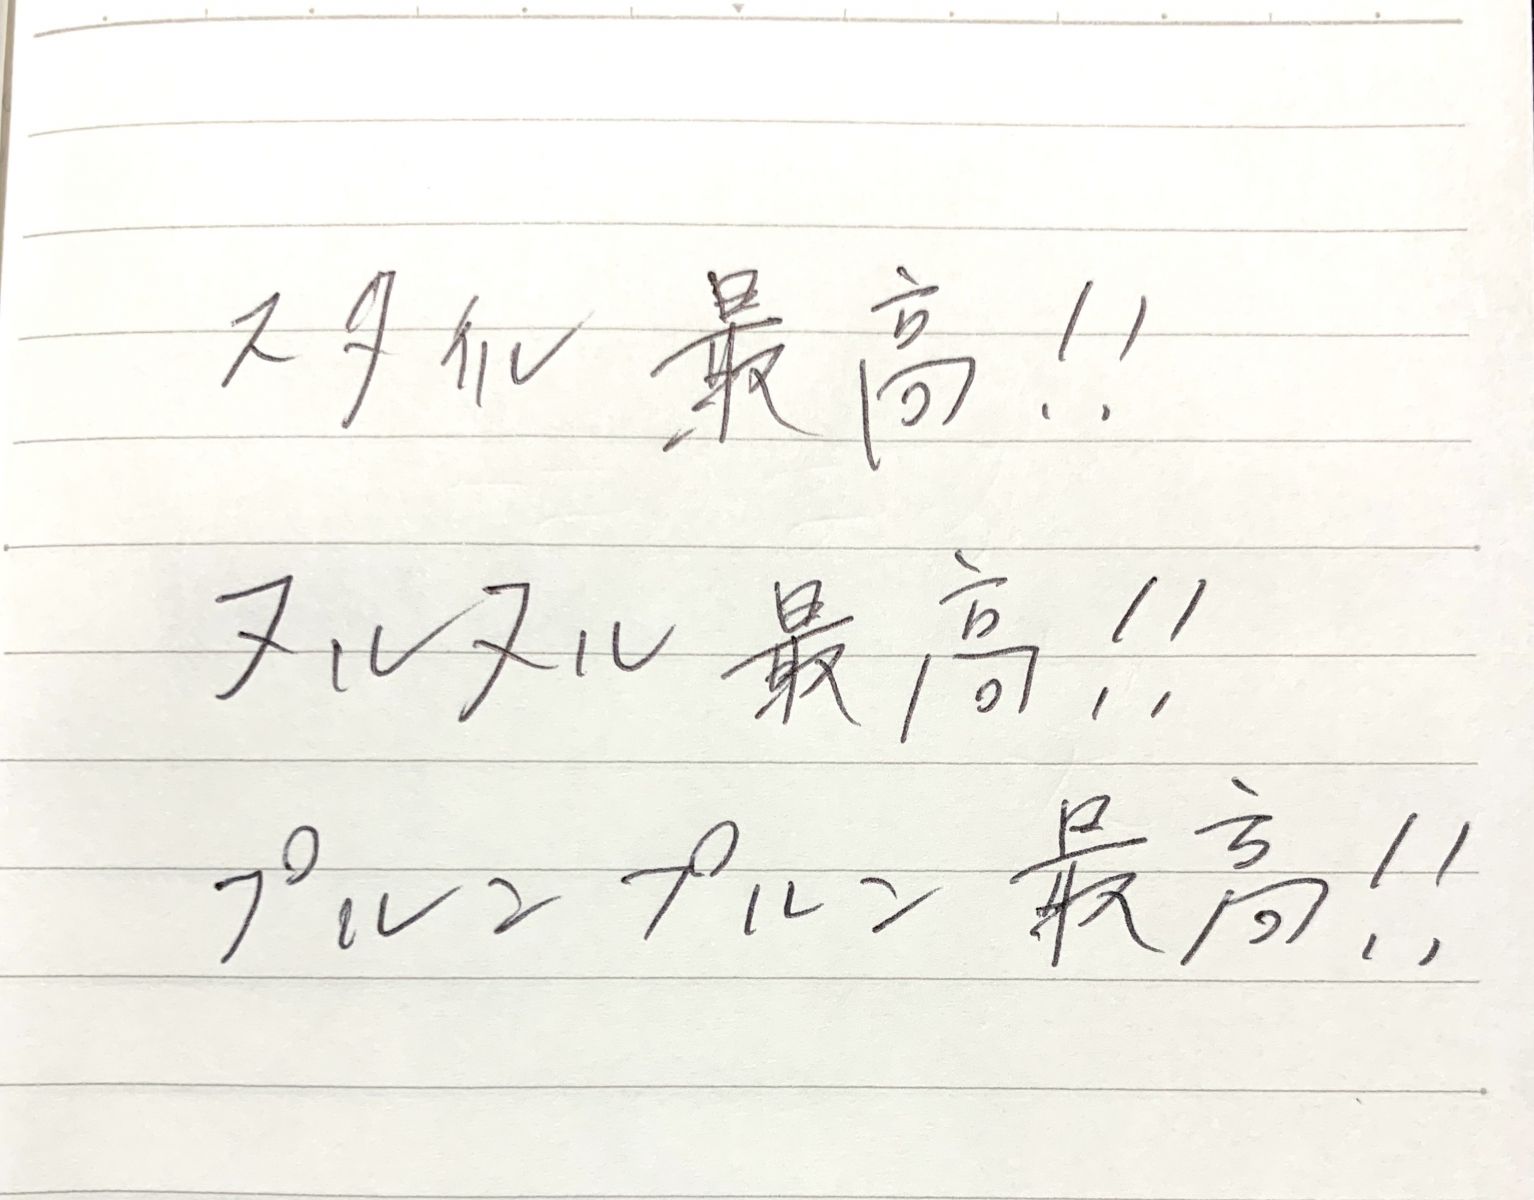 スタイル 最高!!
ヌルヌル 最高!!
プルンプルン 最高!!